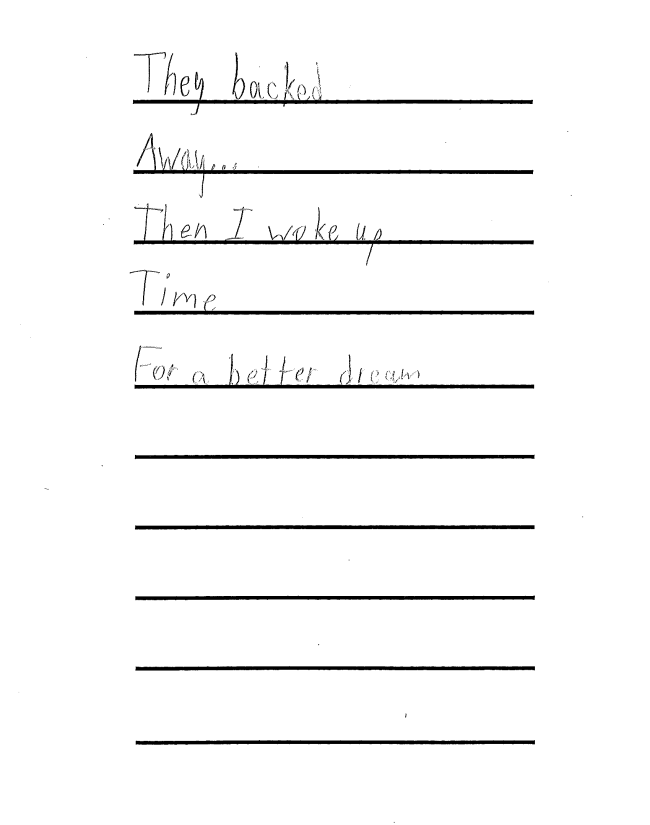 They backed
Away...
Then I woke up
Time
For a better dream